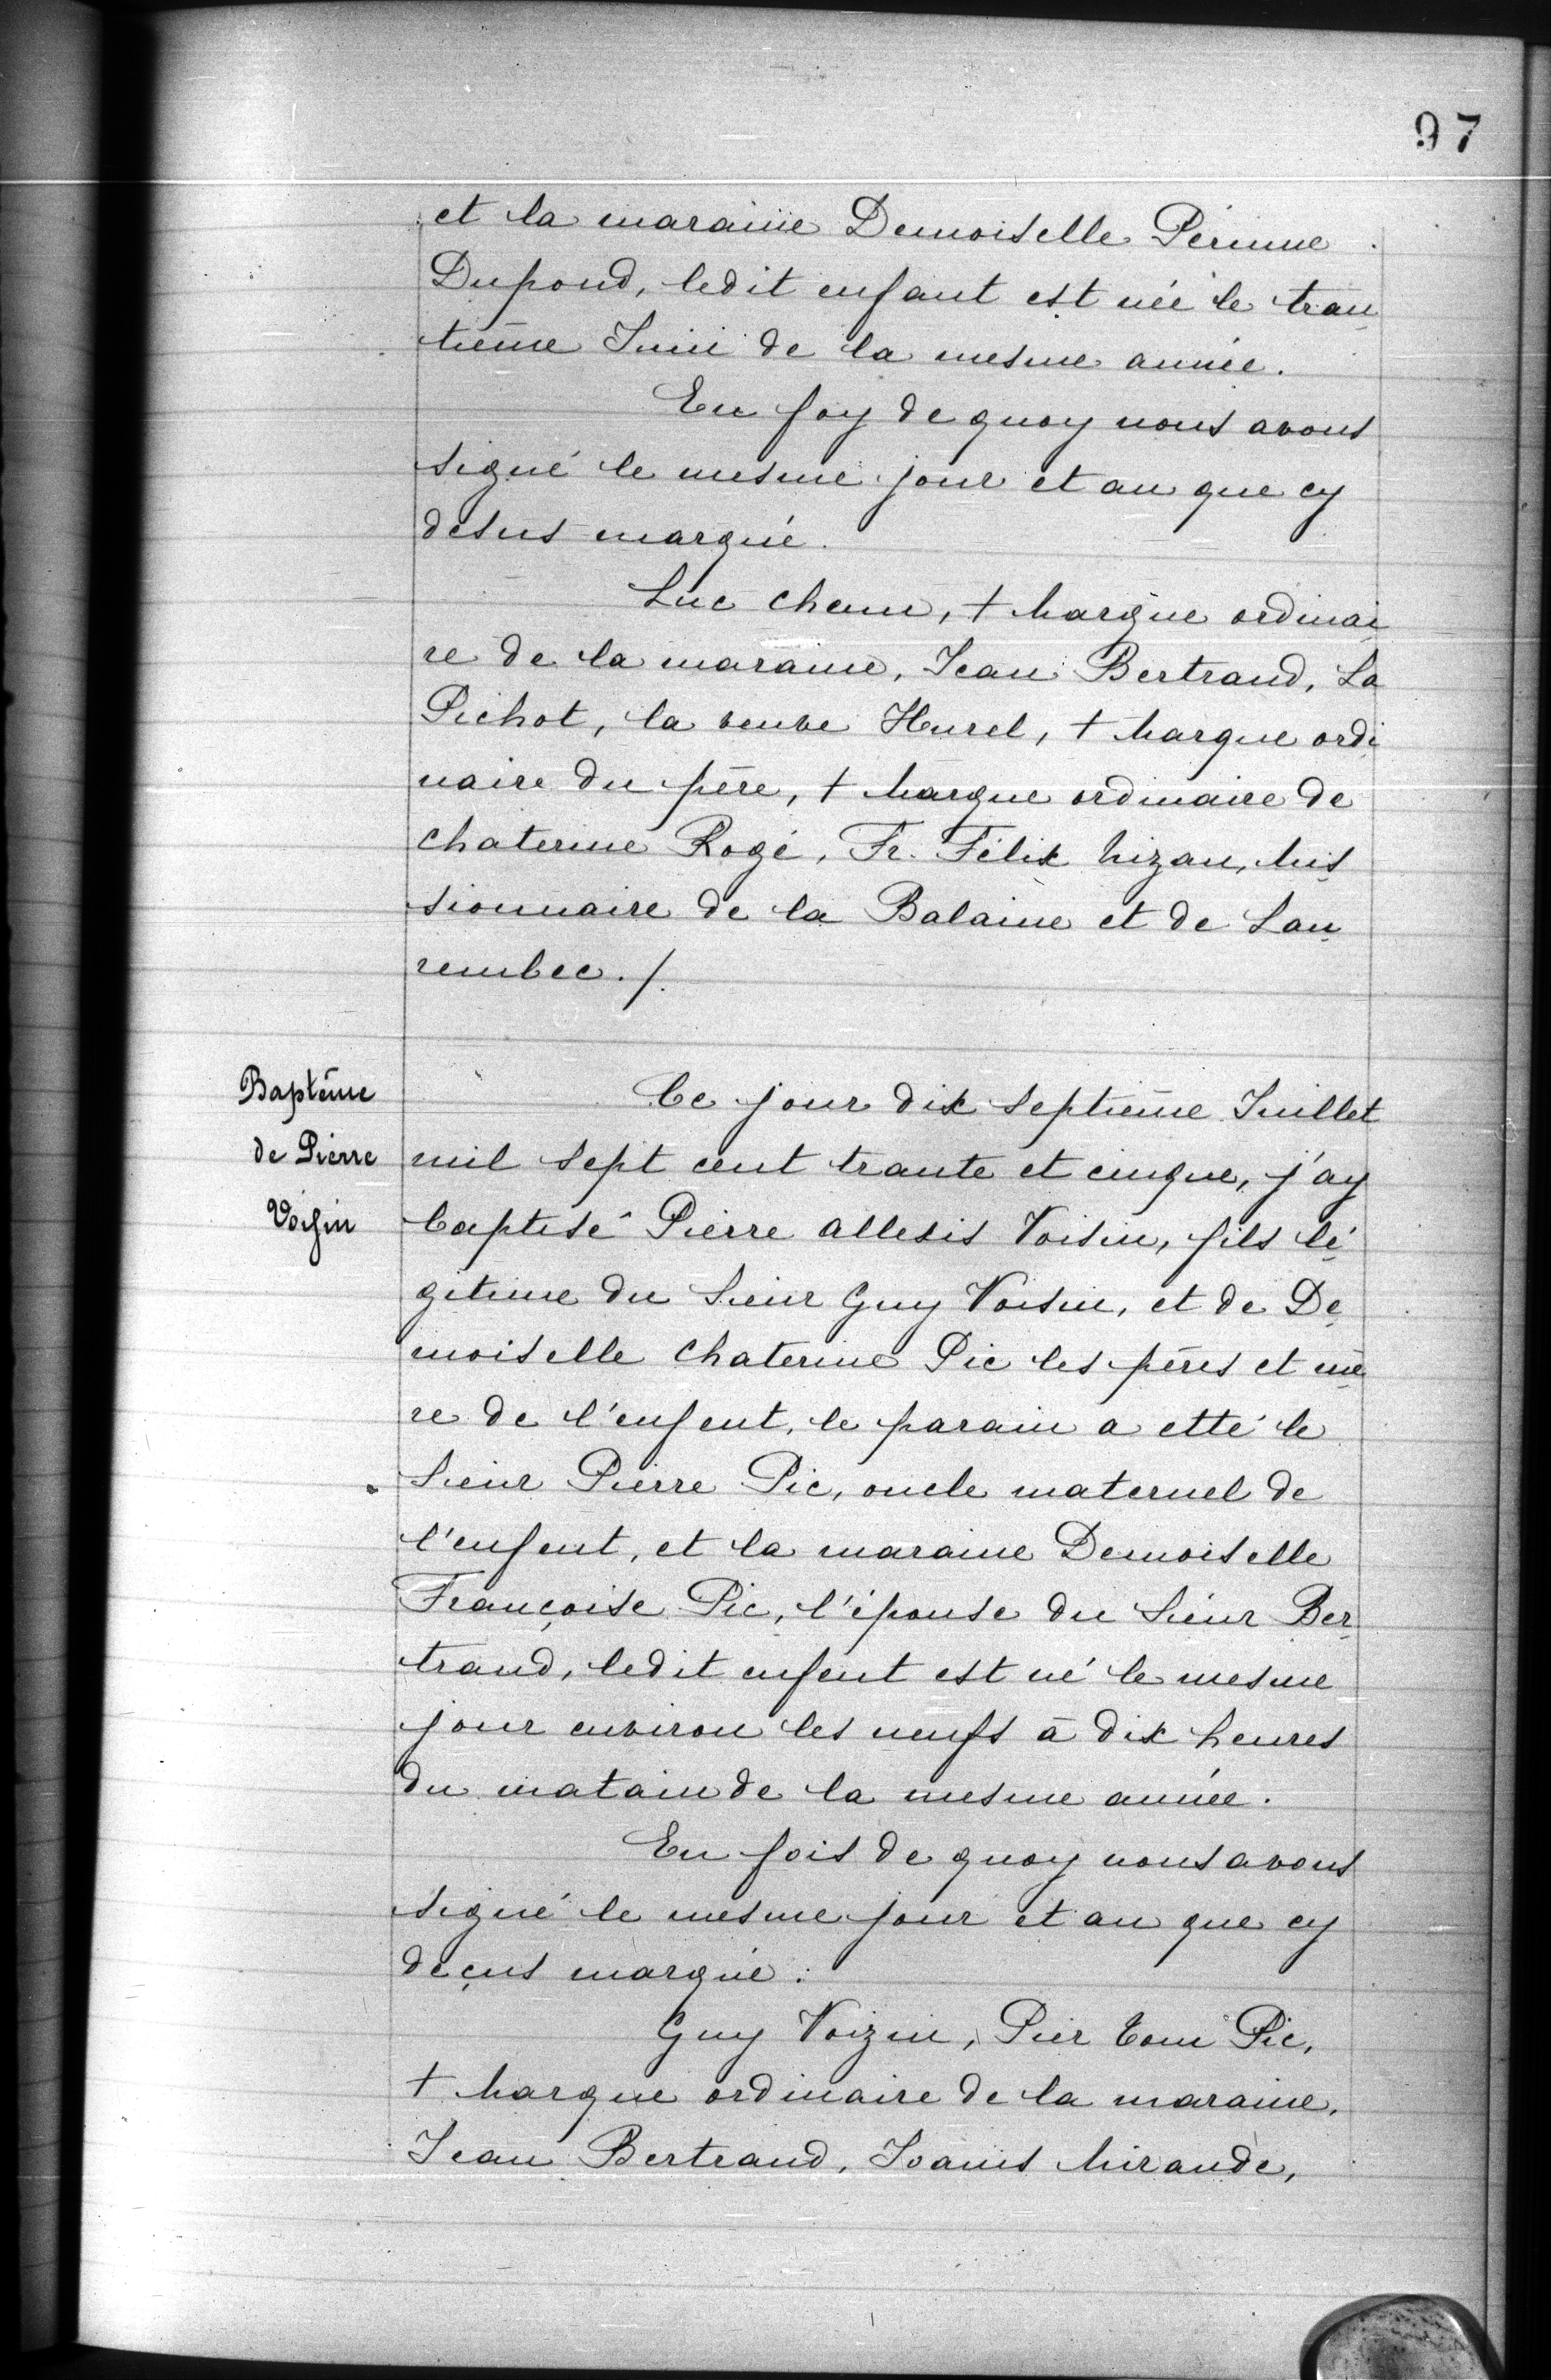 97
et la maraine Demoiselle Périnne
Dupond, ledit enfant est née le tran
tième Juin de la mesme année.
En foy de quoy nous avons
signé le mesme jour et an que cy
desus marqué.
Luc chenu, + Marque ordinai
re de la maraine, Jean Bertrand, La
Pichot, la veuve Hurel, + Marque ordi
naire du père, + Marque ordinaire de
chaterine Rogé, Fr. Félix Mizan, Mis
sionnaire de la Balaine et de Lau
rembec./.
Baptême
de Pierre
Voisin
Ce jour dix septième Juillet
mil sept cent trante et cinque, j'ay
baptisé Pierre allexis Voisin, fils lé
gitime du Sieur Guy Voisin, et de De
moiselle chaterine Pic les pères et mè
re de l'enfent, le parain a etté le
Sieur Pierre Pic, oncle maternel de
l'enfent, et la maraine Demoiselle
Françoise Pic, l'épouse du Sieur Ber
trand, ledit enfent est né le mesme
jour environ les neufs à dix heures
du matain de la mesme année.
En fois de quoy nous avons
signé le mesme jour et an que cy
deçus marqué.
Guy Voizin, Pier Tom Pic,
+ Marque ordinaire de la maraine,
Jean Bertrand, Joanis Mirande,